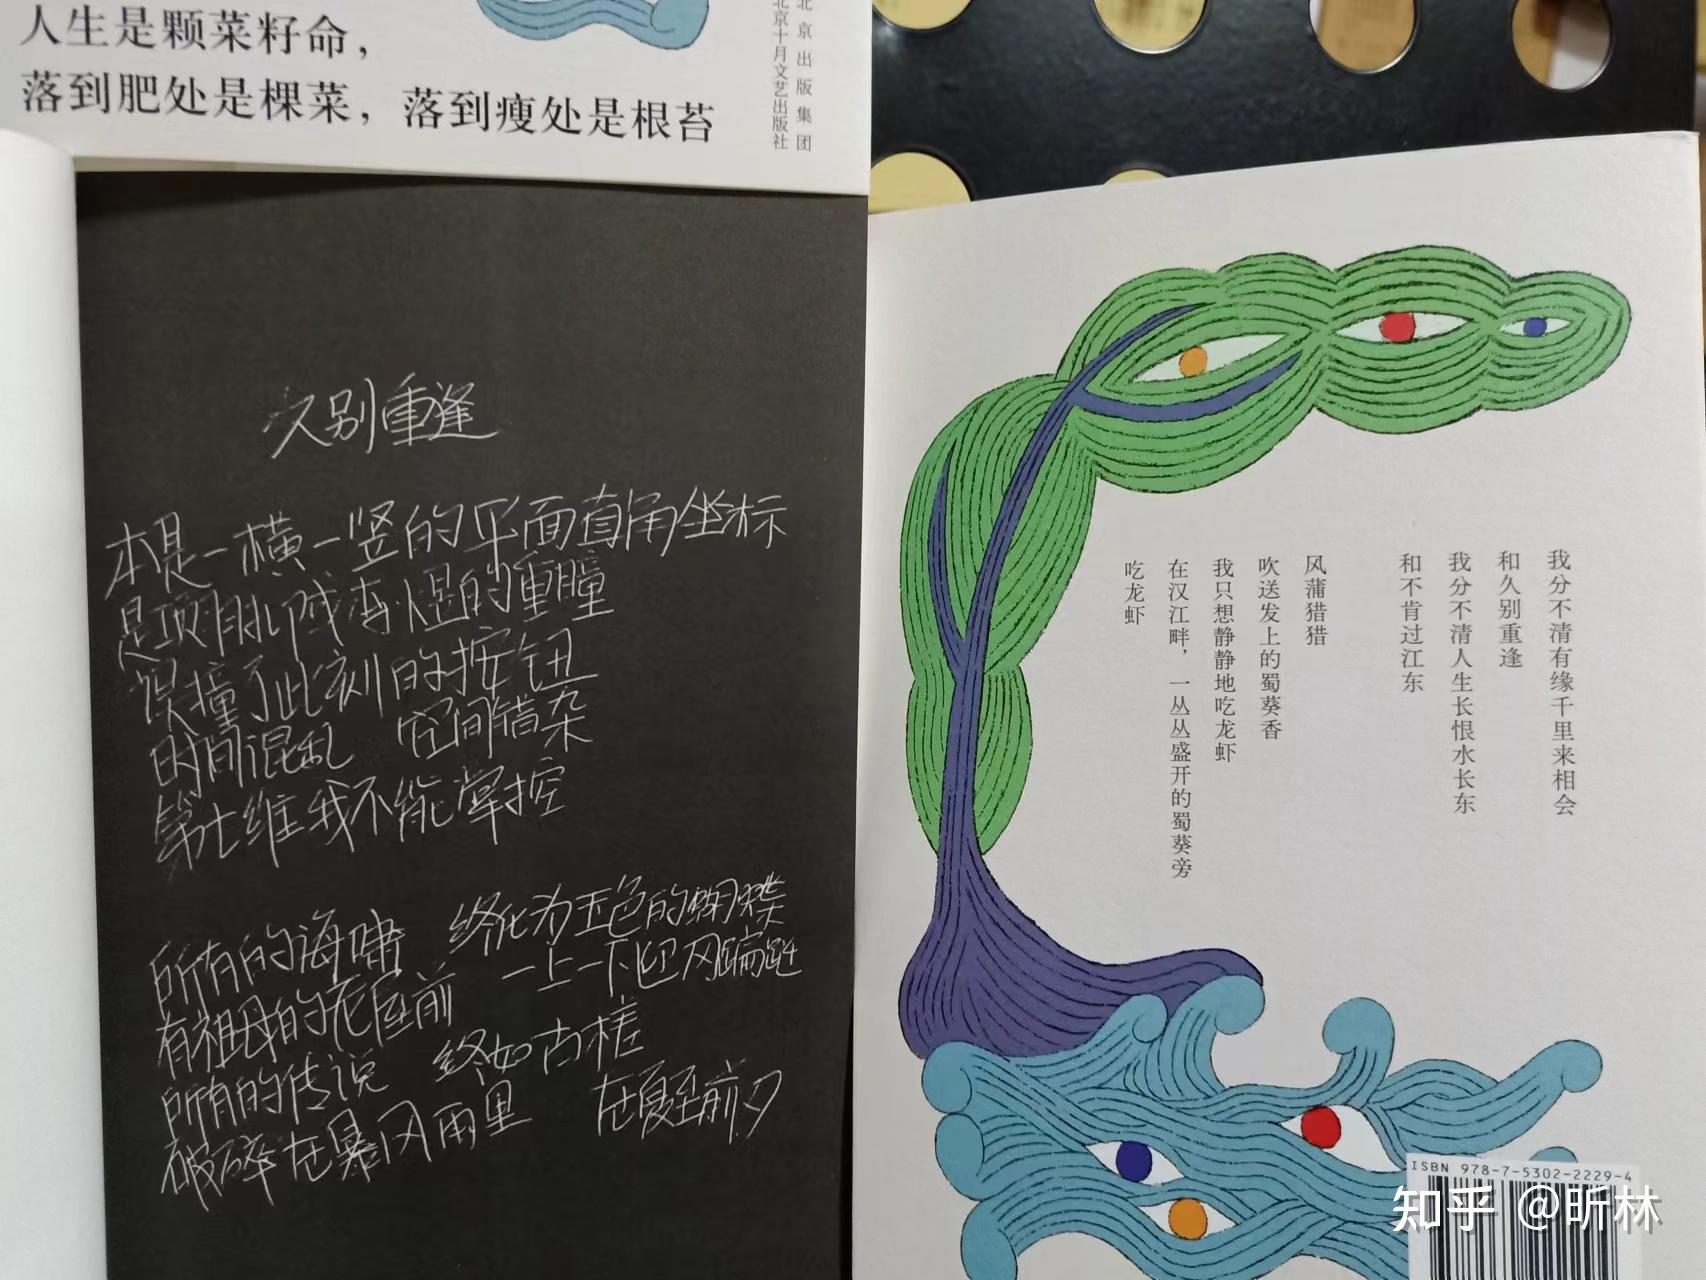 人生是颗菜籽命，
落到肥处是棵菜，落到瘦处是根苔
北京出版集团
北京十月文艺出版社
久别重逢
本是一横一竖的平面直角坐标
是项羽
误撞了此刻的按钮
时间混乱 空间错杂
第七维我不能掌控
所有的海啸 终化为玉色的蝴蝶
有祖母的老屋前 一上一下迎风蹁跹
所有的传说 终如古槎
破碎在暴风雨里 在夏至前夕
我分不清有缘千里来相会
和久别重逢
我分不清人生长恨水长东
和不肯过江东
风蒲猎猎
吹送发上的蜀葵香
我只想静静地吃龙虾
在汉江畔，一丛丛盛开的蜀葵旁
吃龙虾
ISBN 978-7-5302-2229-4
知乎 @昕林